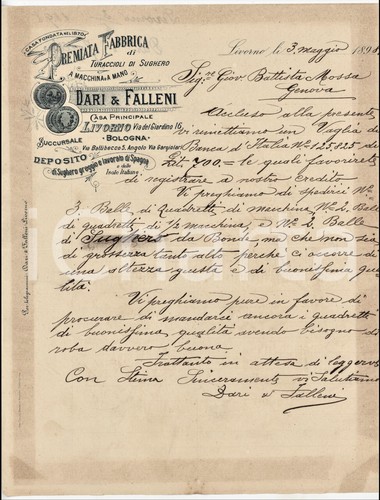 CASA FONDATA NEL 1870
PREMIATA FABBRICA
di
TURACCIOLI DI SUGHERO
A MACCHINA E A MANO
DARI & FALLENI
CASA PRINCIPALE
LIVORNO Via del Giardino 16
SUCCURSALE
BOLOGNA
Via Battibecco 5. Angolo Via Gargiolari
DEPOSITO
di Sughero greggio e lavorato di Spagna
e delle
Isole Italiane
Per telegrammi: Dari e Falleni Livorno
Livorno li 3 Maggio 1898
Sig.re Giov. Battista Mossa
Genova
Accluso alla presente
vi rimettiamo un Vaglia de
Banca d'Italia N.o 125,825 di
Lit. 700.= le quali favorirete
di registrare a nostro Credito
Vi preghiamo di spedirci N.o
3. Balle di Quadretti di macchina N.o 2. Balle
di quadretti di ½ macchina, e N.o 2. Balle
di Sughero da Bonde, ma che non sia
di grossezza tanto alto perchè ci occorre di
una altezza giusta e di buonissima qua
lità.
Vi preghiamo pure in favore di
procurare di mandarci ancora i quadretti
di buonissima qualità avendo bisogno di
roba davvero buona.
Frattanto in attesa di leggervi
Con Stima Sinceramente vi Salutiamo
Dari & Falleni